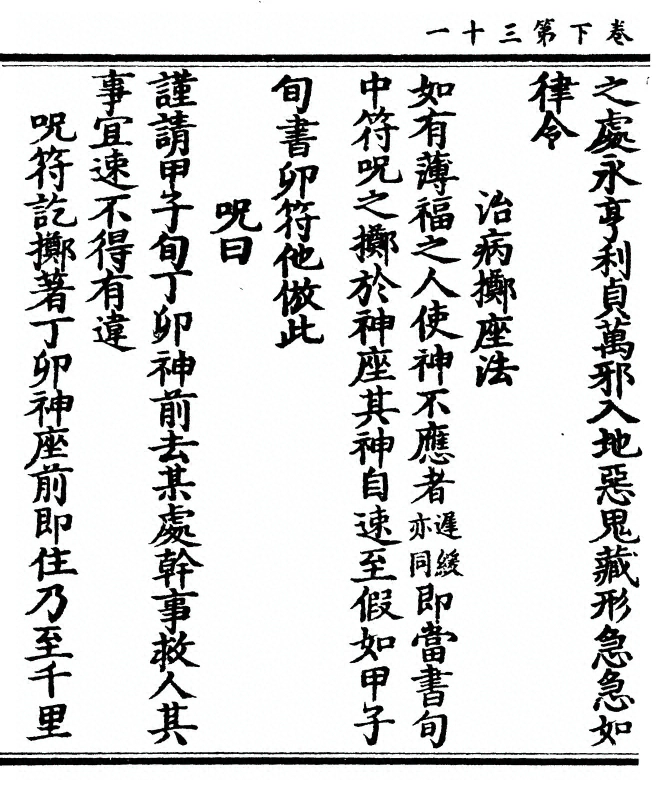 卷下第三十一
之處永亨利貞萬邪入地惡鬼藏形急急如
律令
治病擲座法
如有薄福之人使神不應者遲緩亦同即當書旬
中符呪之擲於神座其神自速至假如甲子
旬書卯符他倣此
呪曰
謹請甲子旬丁卯神前去某處幹事救人其
事宜速不得有違
呪符訖擲著丁卯神座前即住乃至千里